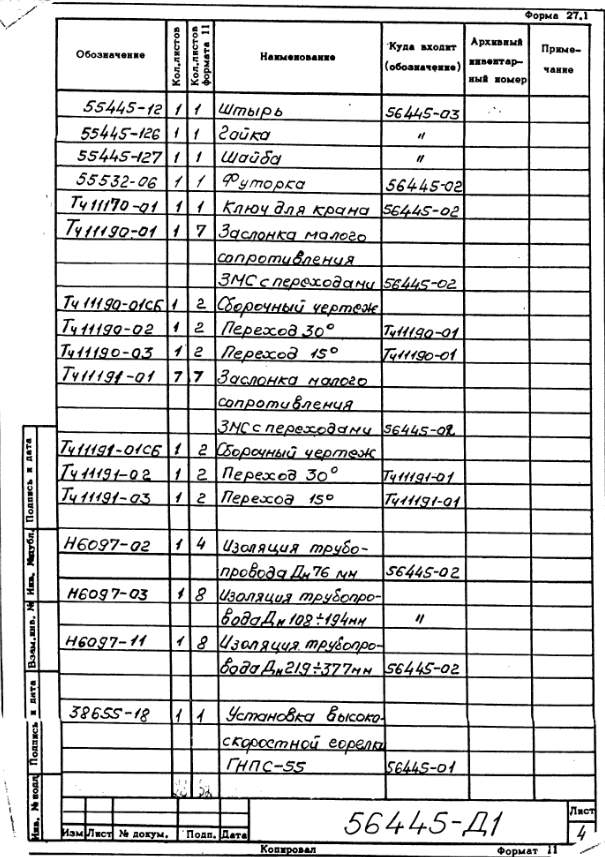 Форма 27.1
Обозначение Кол.листов Кол.листов формата 11 Наименование Куда входит (обозначение) Архивный инвентарный номер Примечание
55445-12 1 1 Штырь 56445-03
55445-126 1 1 Гайка "
55445-127 1 1 Шайба "
55532-06 1 1 Футорка 56445-02
Тч11170-01 1 1 Ключ для крана 56445-02
Тч11190-01 1 7 Заслонка малого
сопротивления
ЗМС с переходами 56445-02
Тч11190-01СБ 1 2 Сборочный чертеж
Тч11190-02 1 2 Переход 30° Тч11190-01
Тч11190-03 1 2 Переход 15° Тч11190-01
Тч11191-01 7 7 Заслонка малого
сопротивления
ЗМС с переходами 56445-02
Тч11191-01СБ 1 2 Сборочный чертеж
Тч11191-02 1 2 Переход 30° Тч11191-01
Тч11191-03 1 2 Переход 15° Тч11191-01
Н6097-02 1 4 Изоляция трубо-
провода Дн 76 мм 56445-02
Н6097-03 1 8 Изоляция трубопро-
вода Дн 108÷194мм "
Н6097-11 1 8 Изоляция трубопро-
вода Дн 219÷377мм 56445-02
38655-18 1 1 Установка высоко-
скоростной горелки
ГНПС-55 56445-01
Инв. № подл. Подпись и дата Взам. инв. № Инв. № дубл. Подпись и дата
56445-Д1
Лист
4
Изм Лист № докум. Подп. Дата
Копировал Формат 11